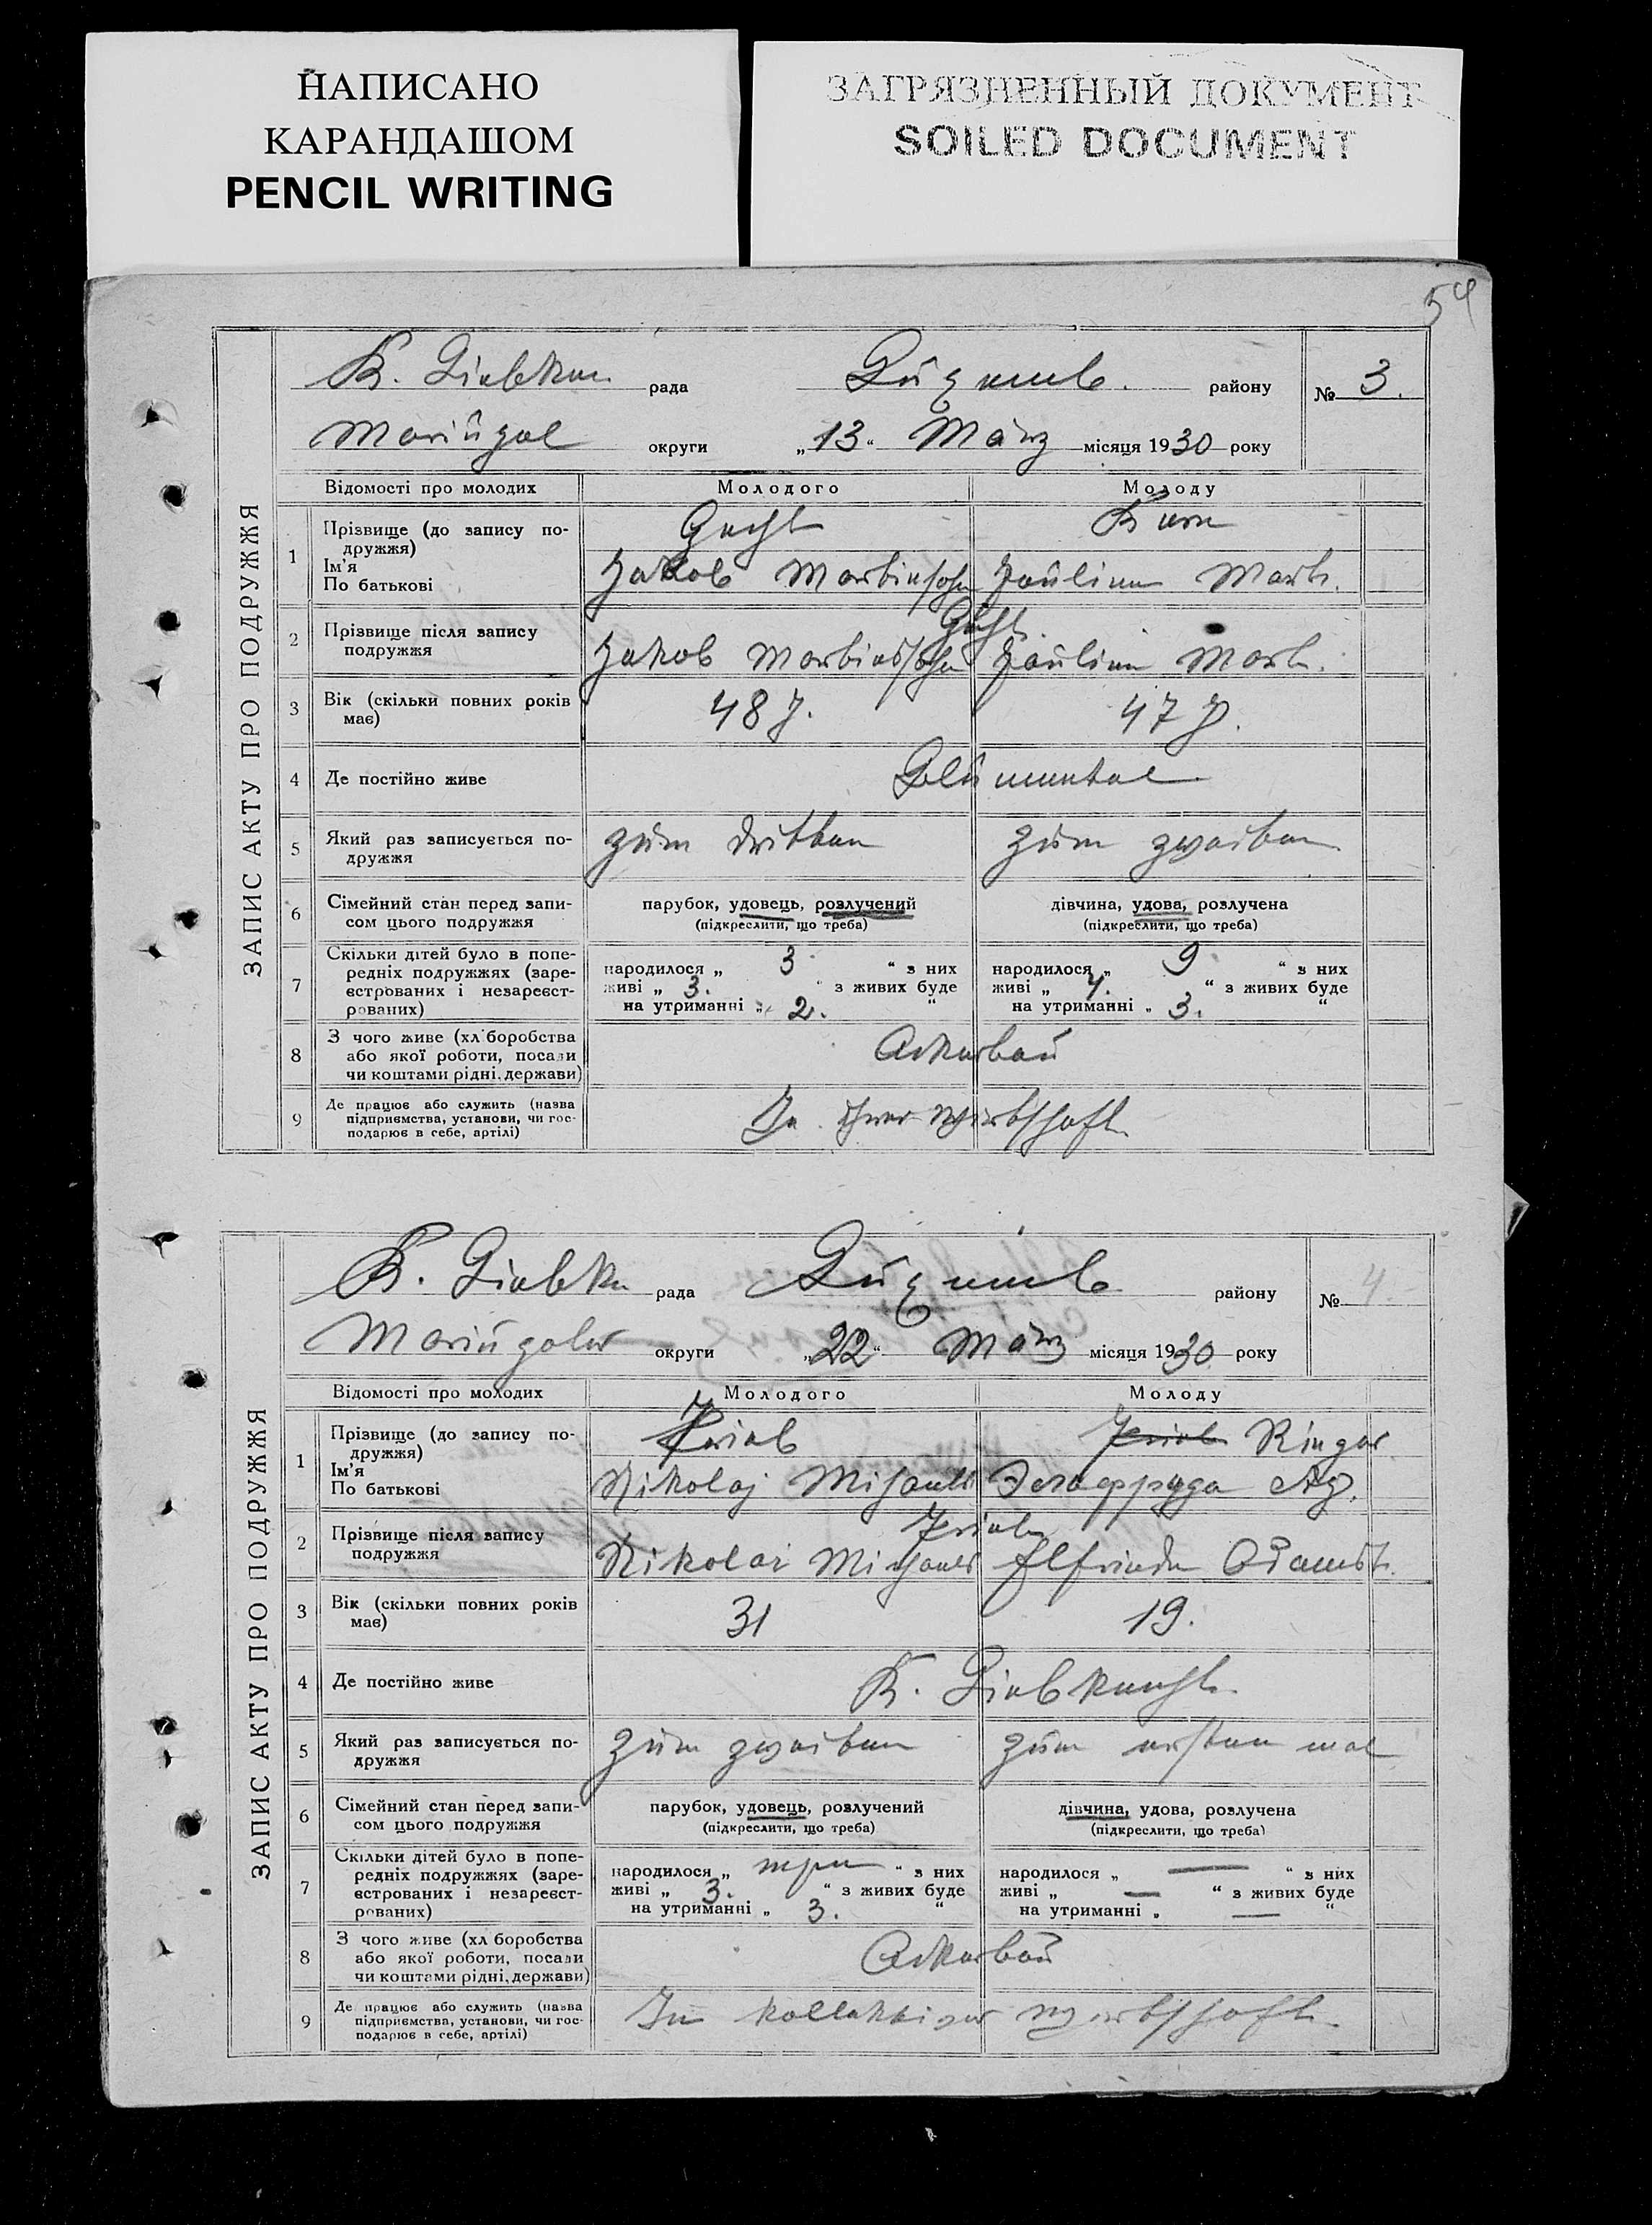 НАПИСАНО
КАРАНДАШОМ
PENCIL WRITING
ЗАГРЯЗНЕННЫЙ ДОКУМЕНТ
SOILED DOCUMENT
54
ЗАПИС АКТУ ПРО ПОДРУЖЖЯ
рада
району
№ 3.
Mariupol округи „13“ März місяця 1930 року
Відомості про молодих
Молодого
Молоду
1
Прізвище (до запису по-
дружжя)
Ім'я
По батькові
Jakob Martinsohn
Paulina Mart.
2
Прізвище після запису
подружжя
Jakob
Paulina Mart.
3
Вік (скільки повних років
має)
48 J.
47 J.
4
Де постійно живе
Blumental
5
Який раз записується по-
дружжя
zum dritten
zum zweiten
6
Сімейний стан перед запи-
сом цього подружжя
парубок, удовець, розлучений
(підкреслити, що треба)
дівчина, удова, розлучена
(підкреслити, що треба)
7
Скільки дітей було в попе-
редніх подружжях (заре-
єстрованих і незареєст-
рованих)
народилося „ 3 “ з них
живі „ 3. “ з живих буде
на утриманні „ 2. “
народилося „ 9 “ з них
живі „ 4. “ з живих буде
на утриманні „ 3. “
8
З чого живе (хліборобства
або якої роботи, посади
чи коштами рідні, держави)
Ackerbau
9
Де працює або служить (назва
підприємства, установи, чи гос-
подарює в себе, артілі)
In ihrer Wirtschaft
ЗАПИС АКТУ ПРО ПОДРУЖЖЯ
рада
району
№ 4.
Mariupoler округи „22“ März місяця 1930 року
Відомості про молодих
Молодого
Молоду
1
Прізвище (до запису по-
дружжя)
Ім'я
По батькові
Ringer
Nikolaj
2
Прізвище після запису
подружжя
Nikolai
Elfrieda
3
Вік (скільки повних років
має)
31
19.
4
Де постійно живе
K. Liebknecht
5
Який раз записується по-
дружжя
zum zweiten
zum ersten mal
6
Сімейний стан перед запи-
сом цього подружжя
парубок, удовець, розлучений
(підкреслити, що треба)
дівчина, удова, розлучена
(підкреслити, що треба)
7
Скільки дітей було в попе-
редніх подружжях (заре-
єстрованих і незареєст-
рованих)
народилося „ три “ з них
живі „ 3. “ з живих буде
на утриманні „ 3. “
народилося „ — “ з них
живі „ — “ з живих буде
на утриманні „ — “
8
З чого живе (хліборобства
або якої роботи, посади
чи коштами рідні, держави)
Ackerbau
9
Де працює або служить (назва
підприємства, установи, чи гос-
подарює в себе, артілі)
In kollektiver Wirtschaft